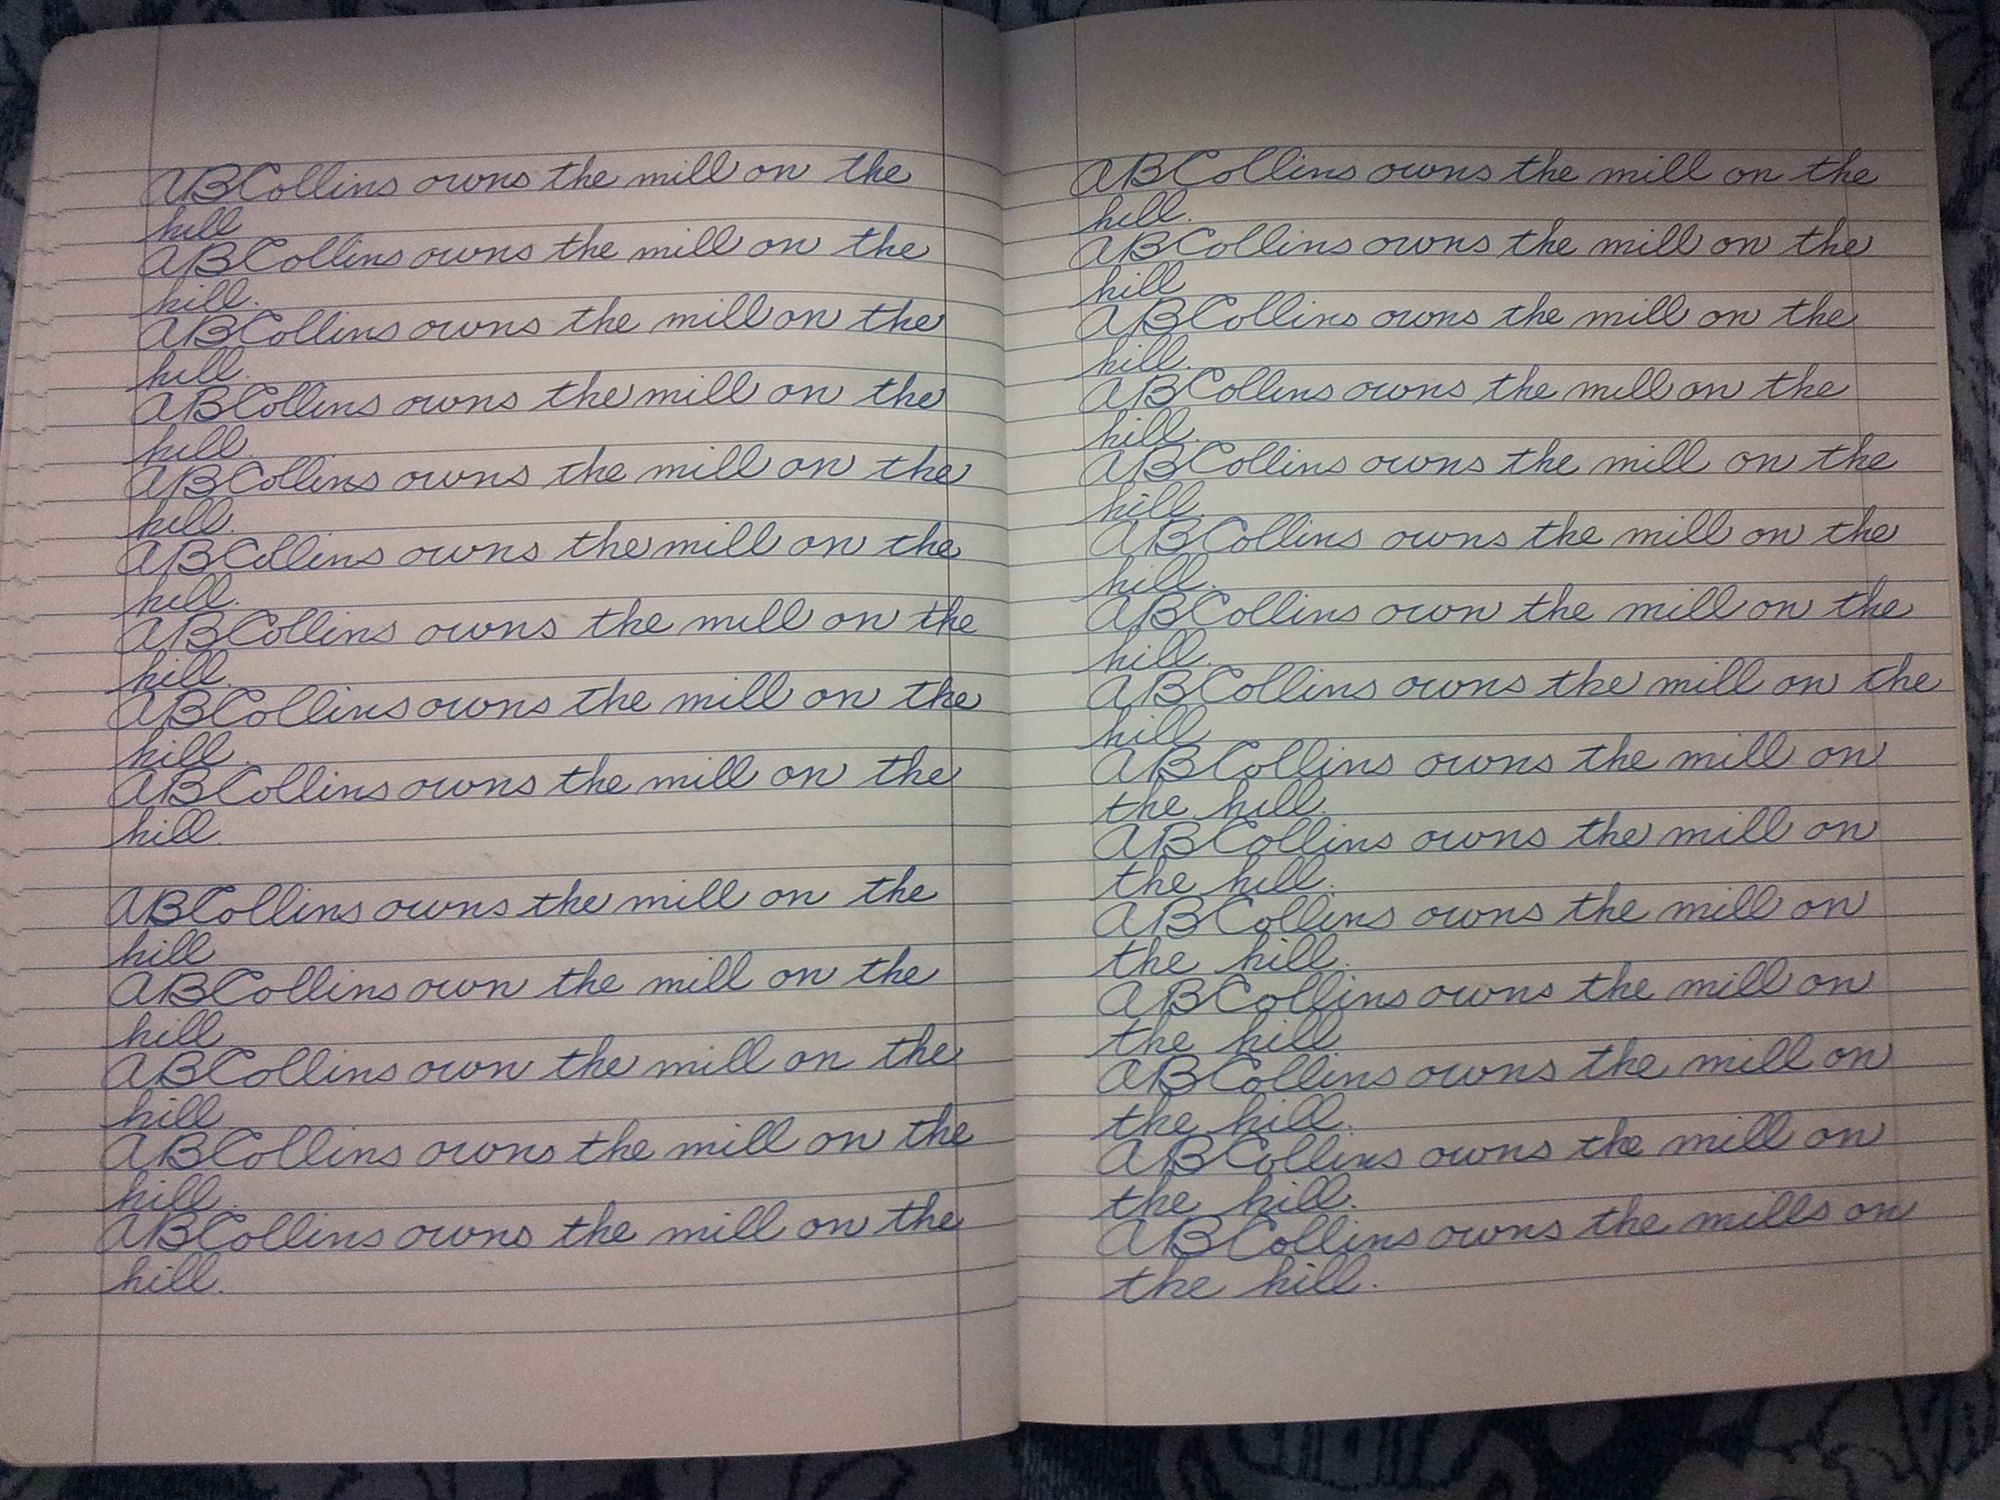 ABCollins owns the mill on the
hill
ABCollins owns the mill on the
hill.
ABCollins owns the mill on the
hill.
ABCollins owns the mill on the
hill
ABCollins owns the mill on the
hill.
ABCollins owns the mill on the
hill.
ABCollins owns the mill on the
hill.
ABCollins owns the mill on the
hill.
ABCollins owns the mill on the
hill.
ABCollins owns the mill on the
hill
ABCollins own the mill on the
hill
ABCollins own the mill on the
hill
ABCollins owns the mill on the
hill.
ABCollins owns the mill on the
hill.
ABCollins owns the mill on the
hill.
ABCollins owns the mill on the
hill
ABCollins owns the mill on the
hill.
ABCollins owns the mill on the
hill.
ABCollins owns the mill on the
hill.
ABCollins owns the mill on the
hill.
ABCollins own the mill on the
hill.
ABCollins owns the mill on the
hill
ABCollins owns the mill on
the hill.
ABCollins owns the mill on
the hill.
ABCollins owns the mill on
the hill.
ABCollins owns the mill on
the hill
ABCollins owns the mill on
the hill.
ABCollins owns the mill on
the hill.
ABCollins owns the mills on
the hill.